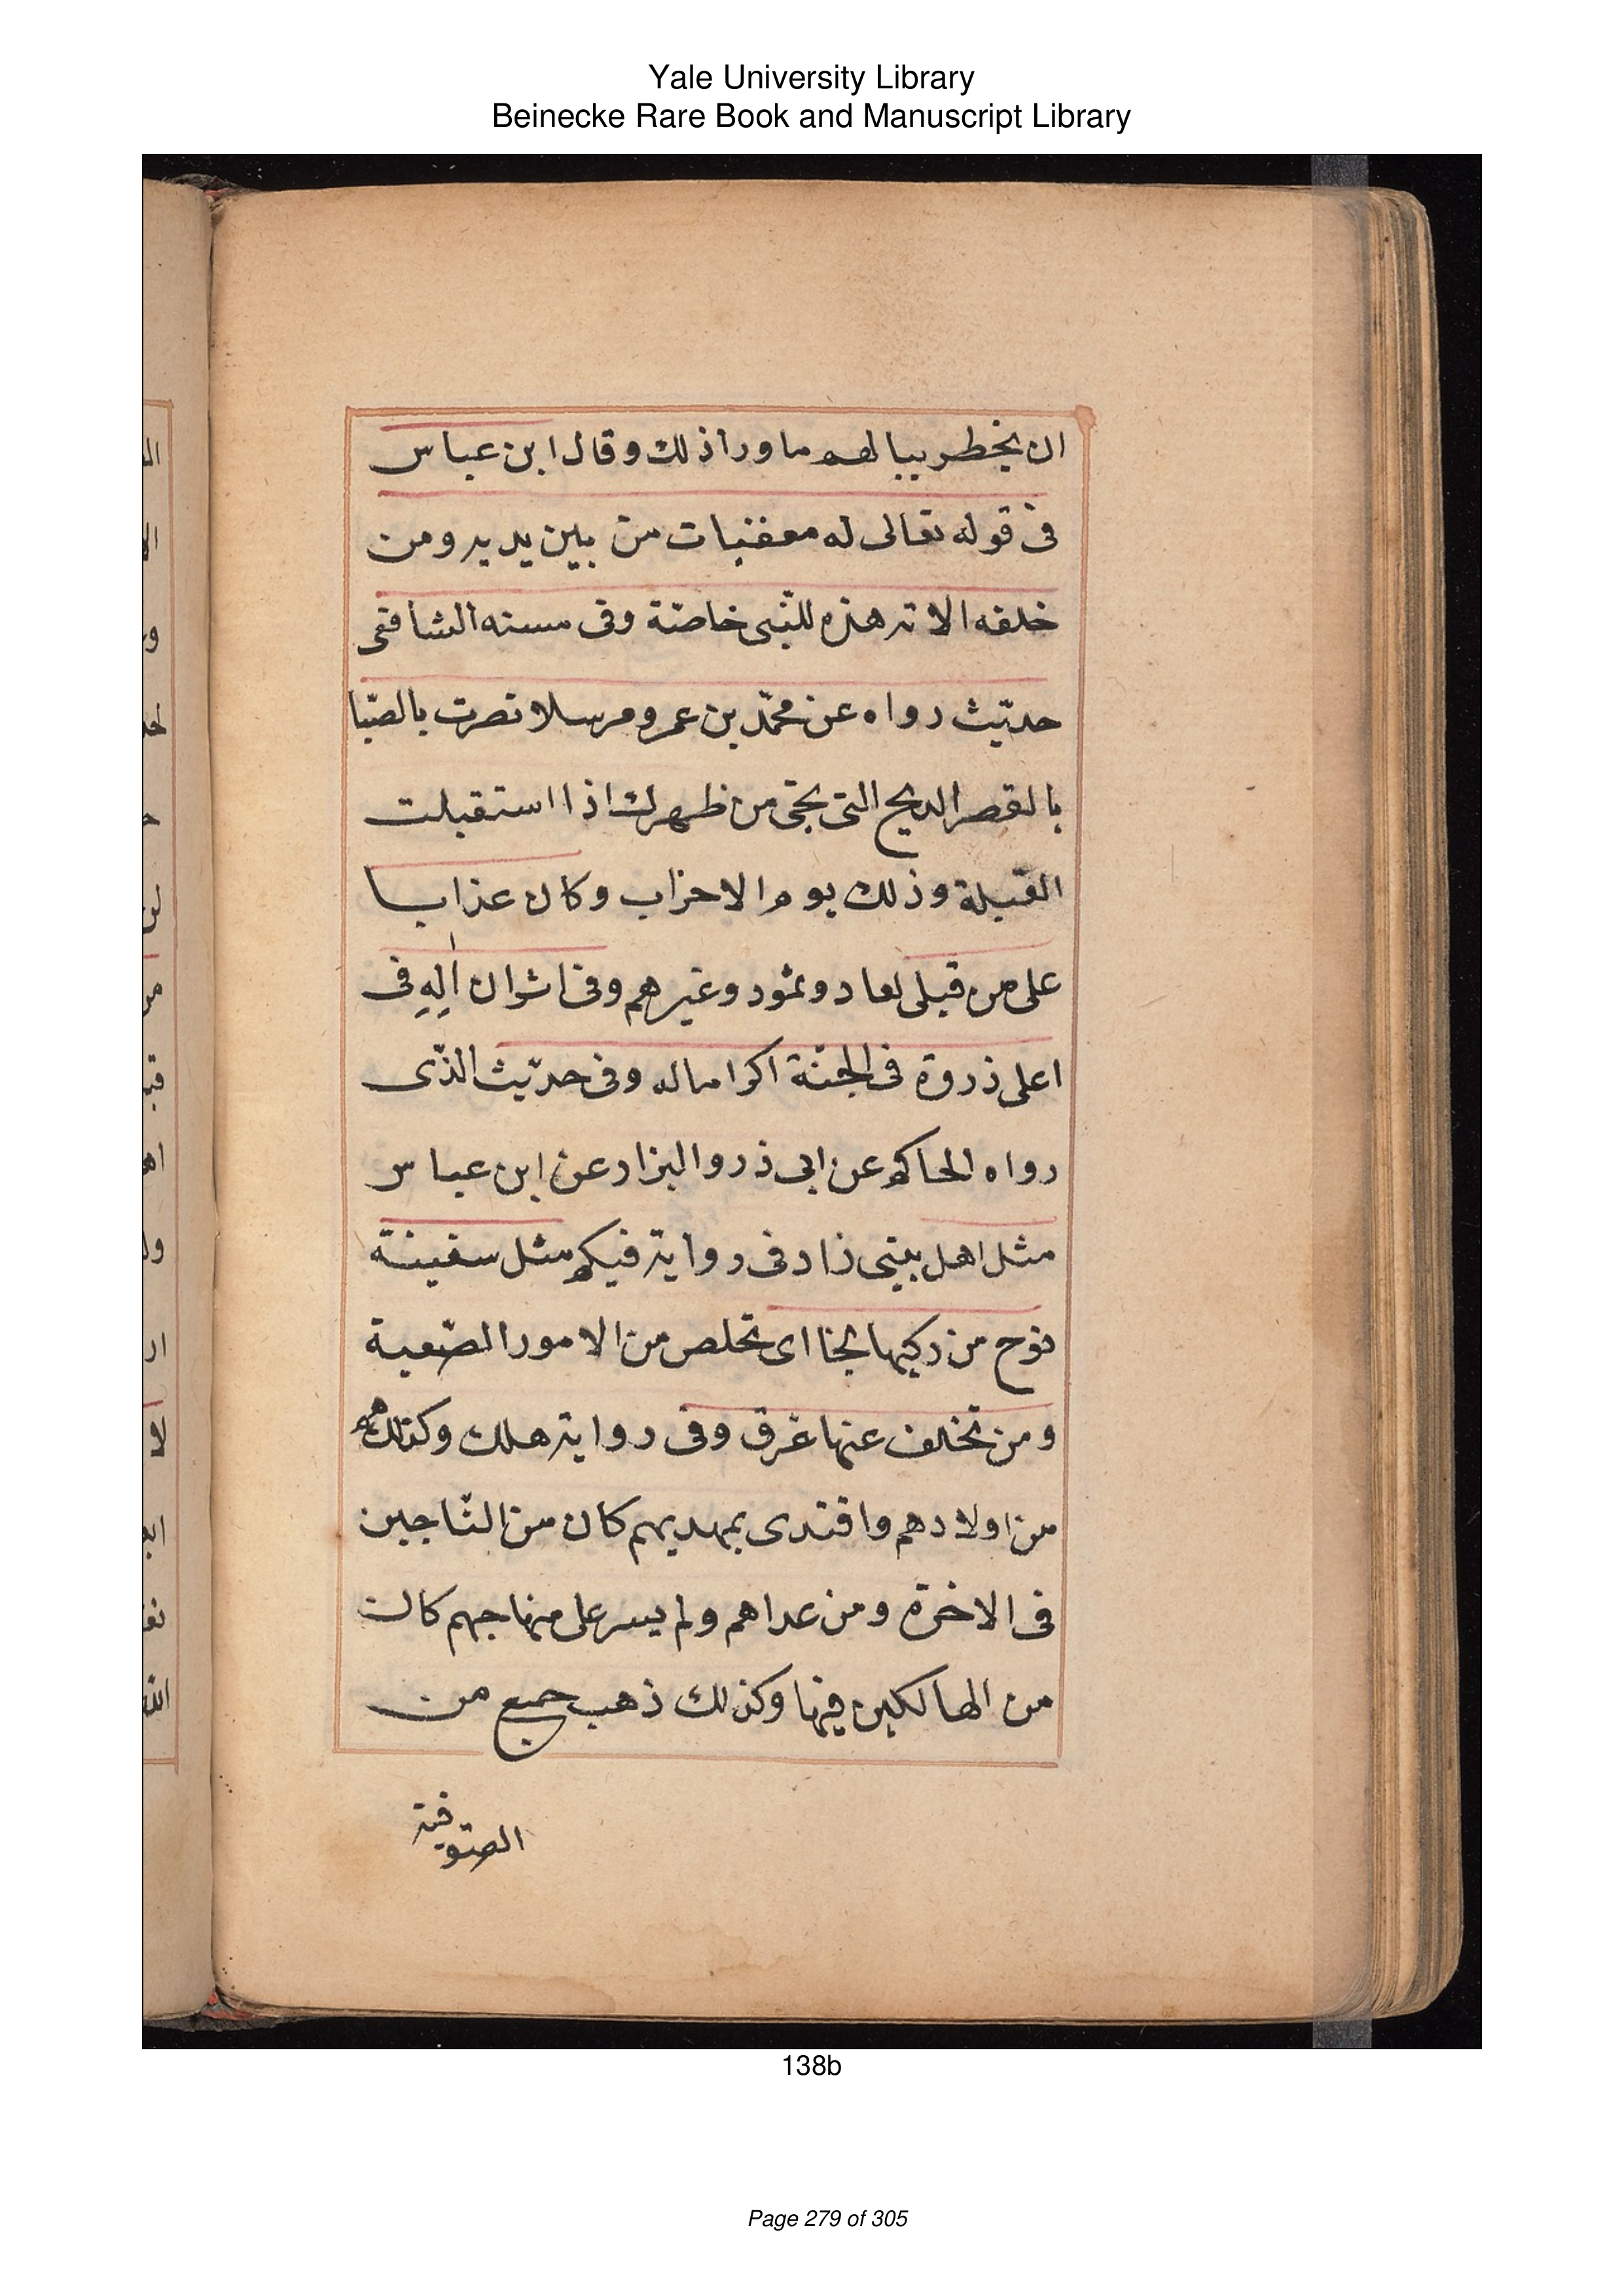 Yale University Library
Beinecke Rare Book and Manuscript Library
ان يخطر ببالهم ما ورا ذلك وقال ابن عباس
فى قوله تعالى له معقبات من بين يديه ومن
خلفه الاتة هذه للنّبى خاصّة وفى مسند الشافعى
حديّث رواه عن محمّد بن عمرو مرسلا نصرت بالصّبا
بالقصر الريح التى تجى من ظهرك اذا استقبلت
القبلة وذلك يوم الاحزاب وكان عذابا
على من قبلى لعاد وثمود وغيرهم وفى
اعلى ذروة فى الجنّة اكراما له وفى حديّث الذّى
رواه الحاكم عن ابى ذر والبزار عن ابن عباس
مثل اهل بيتى زاد فى رواية فيكم مثل سفينة
نوح من ركبها نجا اى تخلص من الامور الصّعبة
ومن تخلف عنها غرق وفى رواية هلك وكذلك
من اولادهم واقتدى بهديهم كان من النّاجين
فى الاخرة ومن عداهم ولم يسر على منهاجهم كان
من الهالكين فيها وكذلك ذهب جمع من
الصّوفية
138b
Page 279 of 305